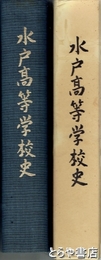 水戸高等学校史
水戸高等学校史
古書
とらや書店